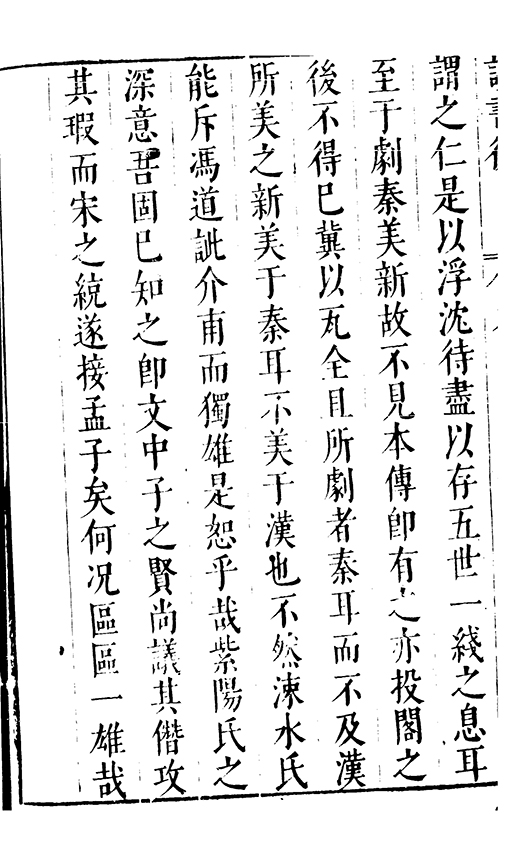 讀書後
謂之仁是以浮沈待盡以存五世一綫之息耳
至于劇秦美新故不見本傳卽有之亦投閣之
後不得已冀以瓦全且所劇者秦耳而不及漢
所美之新美于秦耳不美于漢也不然涑水氏
能斥馮道訿介甫而獨雄是恕乎哉紫陽氏之
深意吾固已知之卽文中子之賢尚議其僭攻
其瑕而宋之統遂接孟子矣何况區區一雄哉